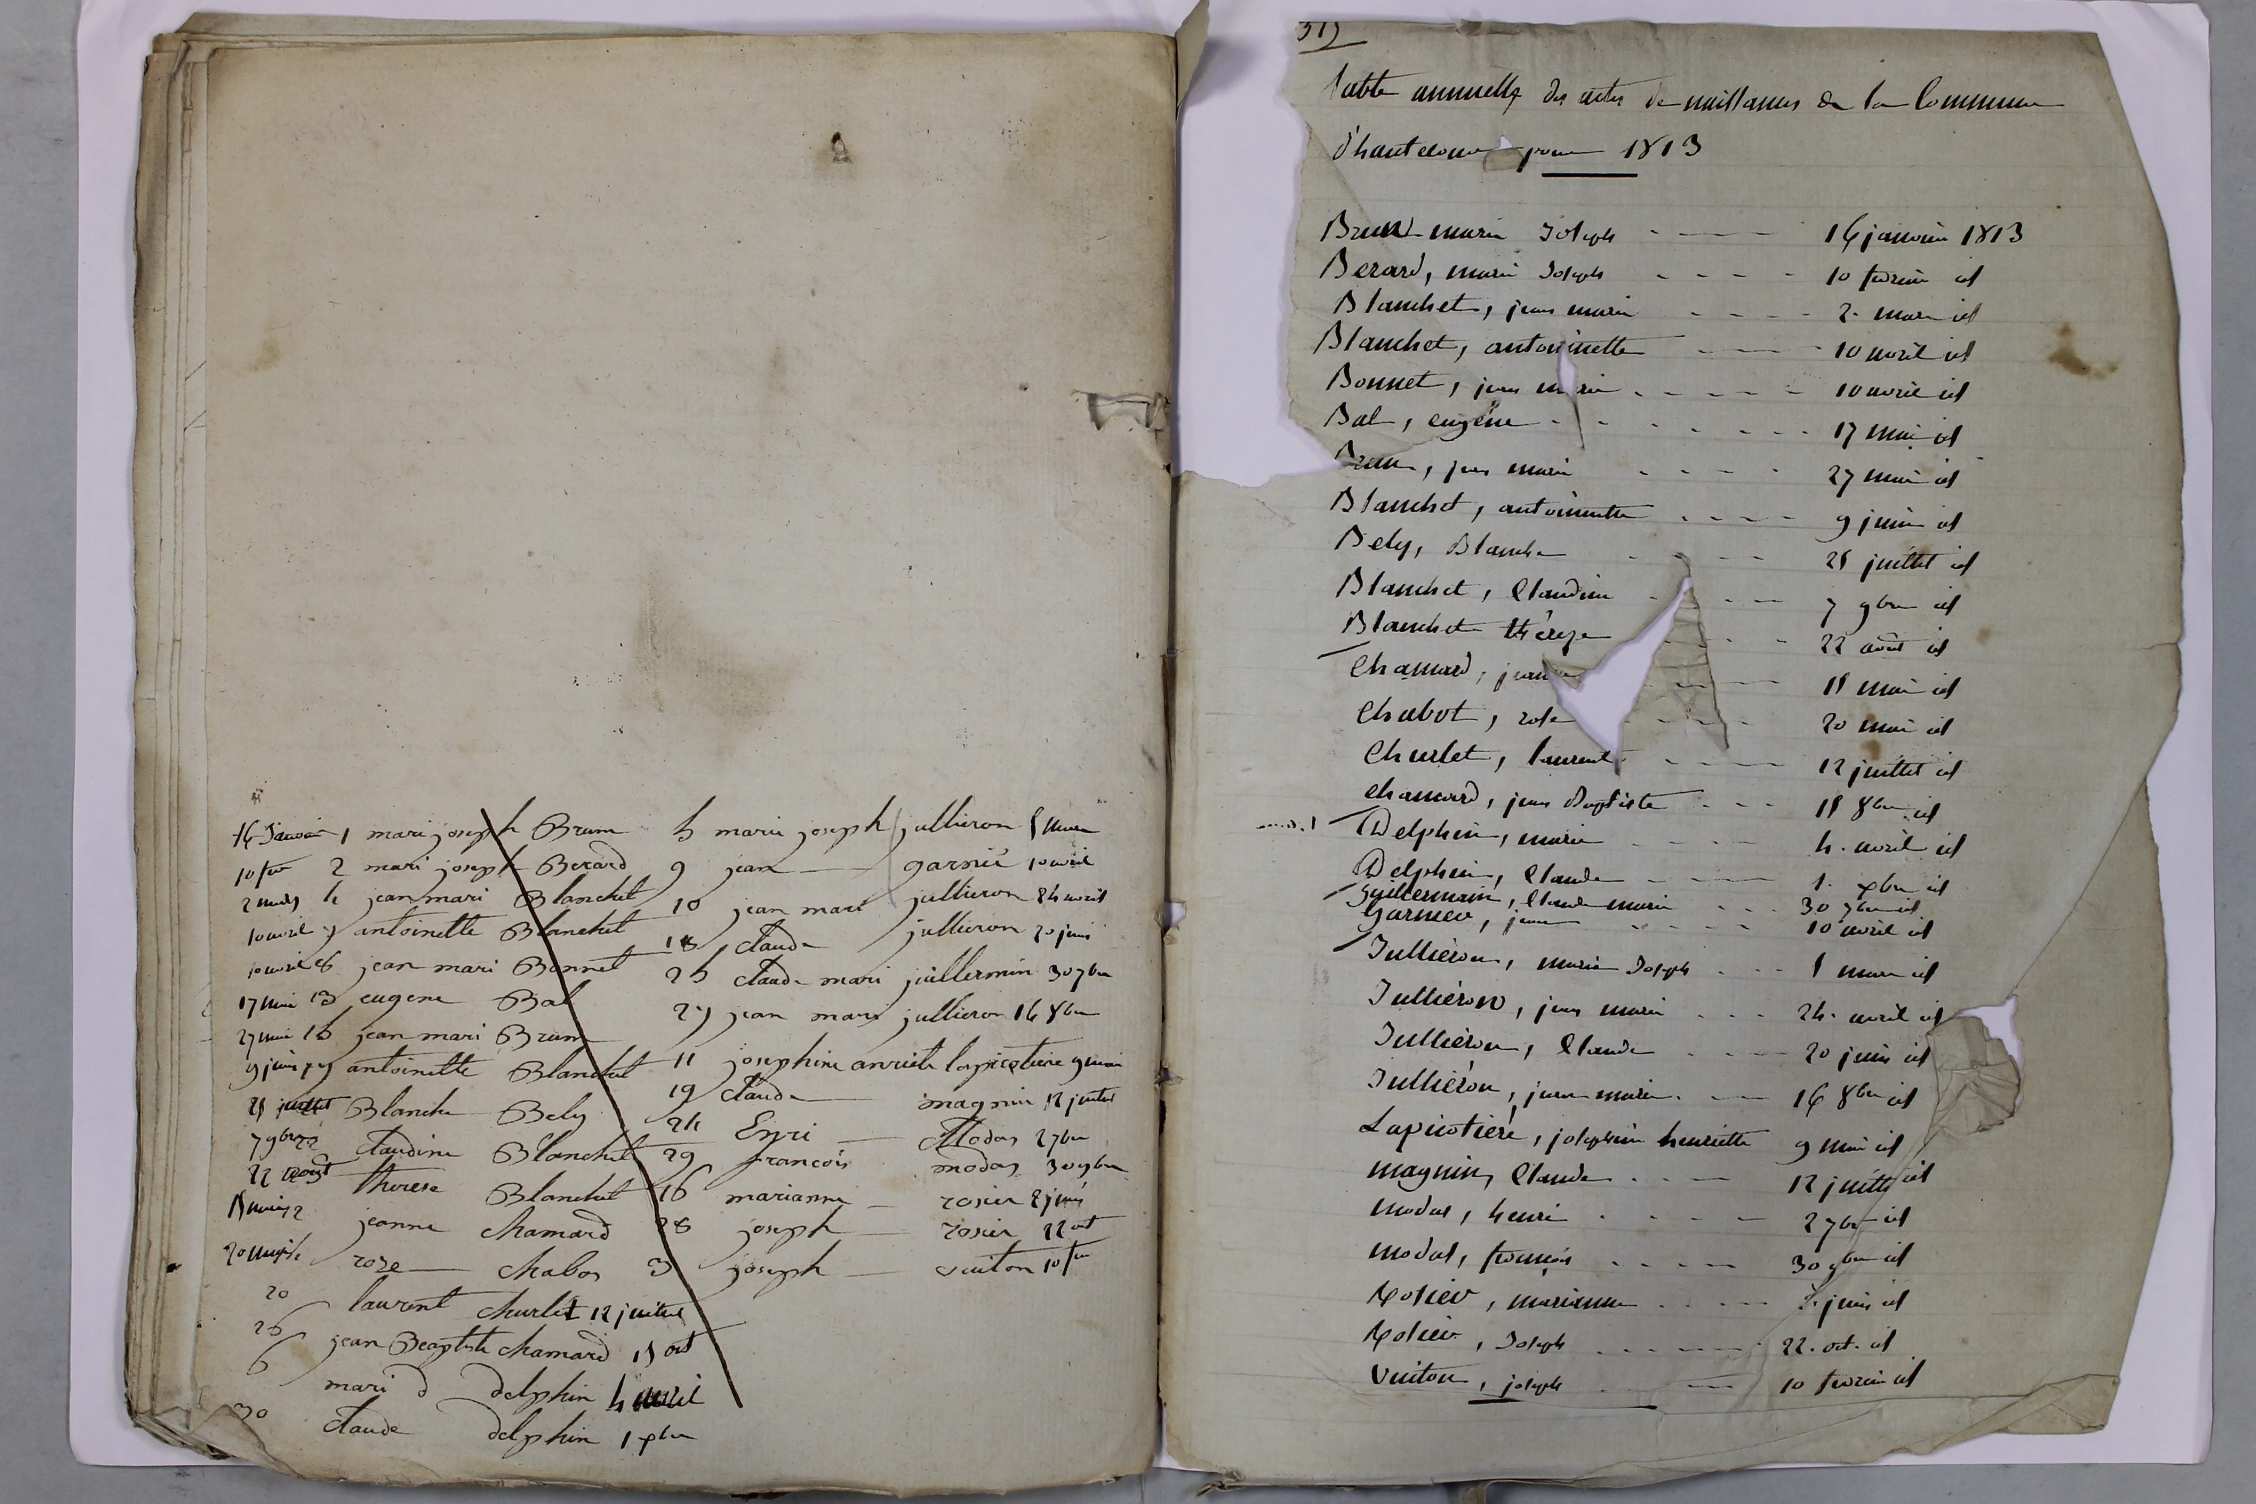 16 Janvier 1 mari joseph Brum 5 marie joseph jullieron 1 mars
10 fer 2 mari joseph Berard 9 jean garnié 10 avril
2 mars 4 jean mari Blanchet 10 jean mari jullieron 24 avril
10 avril 7 antoinette Blanchet 18 claude jullieron 20 juin
10 avril 8 jean mari Bonnet 25 claude mari juillermin 30 7bre
17 mai 13 eugene Bal 27 jean mari jullieron 16 8bre
27 mai 15 jean mari Brum 11 josephine anriete lapicotiere 9 mai
9 juin 17 antoinette Blanchet 19 claude magnin 12 juillet
21 juillet Blanche Bely 24 Enri Modas 2 7bre
7 9bre claudine Blanchet 29 francois modas 30 9bre
22 aout therese Blanchet 16 marianne rosier 2 juin
jeanne chamard 28 joseph rosier 22 oct
20 mai roze chabos 3 joseph vuiton 10 fer
20 laurent churlet 12 juillet
26 jean Beaptiste chamard 15 oct
6 mari d delphin 4 avril
30 claude delphin 1 xbre
319
table annuelle des actes de naissances de la Commune
d'hautecour pour 1813
Brun marie Joseph 16 janvier 1813
Berard, marie Joseph 10 fevrier id
Blanchet, jean marie 2. mars id
Blanchet, antoinette 10 avril id
Bonnet, jean marie 10 avril id
Bal, eugéne 17 mai id
Brun, jean marie 27 mai id
Blanchet, antoinette 9 juin id
Bely, Blanche 21 juillet id
Blanchet, Claudine 7 9bre id
Blanchet théreze 22 août id
Chamard, jeanne 11 mai id
Chabot, rose 20 mai id
Churlet, laurent 12 juillet id
chamard, jean Baptiste 15 8bre id
Delphin, marie 4. avril id
Delphin, Claude 1. xbre id
Guillermain, Claude marie 30 7bre id
Garnier, jean 10 avril id
Jullièron, marie Joseph 1 mars id
Jullièron, jean marie 24. avril id
Jullièron, Claude 20 juin id
Jullièron, jean marie 16 8bre id
Lapicotiére, josephine henriette 9 mai id
magnin, Claude 12 juillet id
modas, henri 2 7bre id
modas, françois 30 9bre id
Rosier, marianne 2. juin id
Rosier, Joseph 22. oct. id
Vuiton, joseph 10 fevrier id